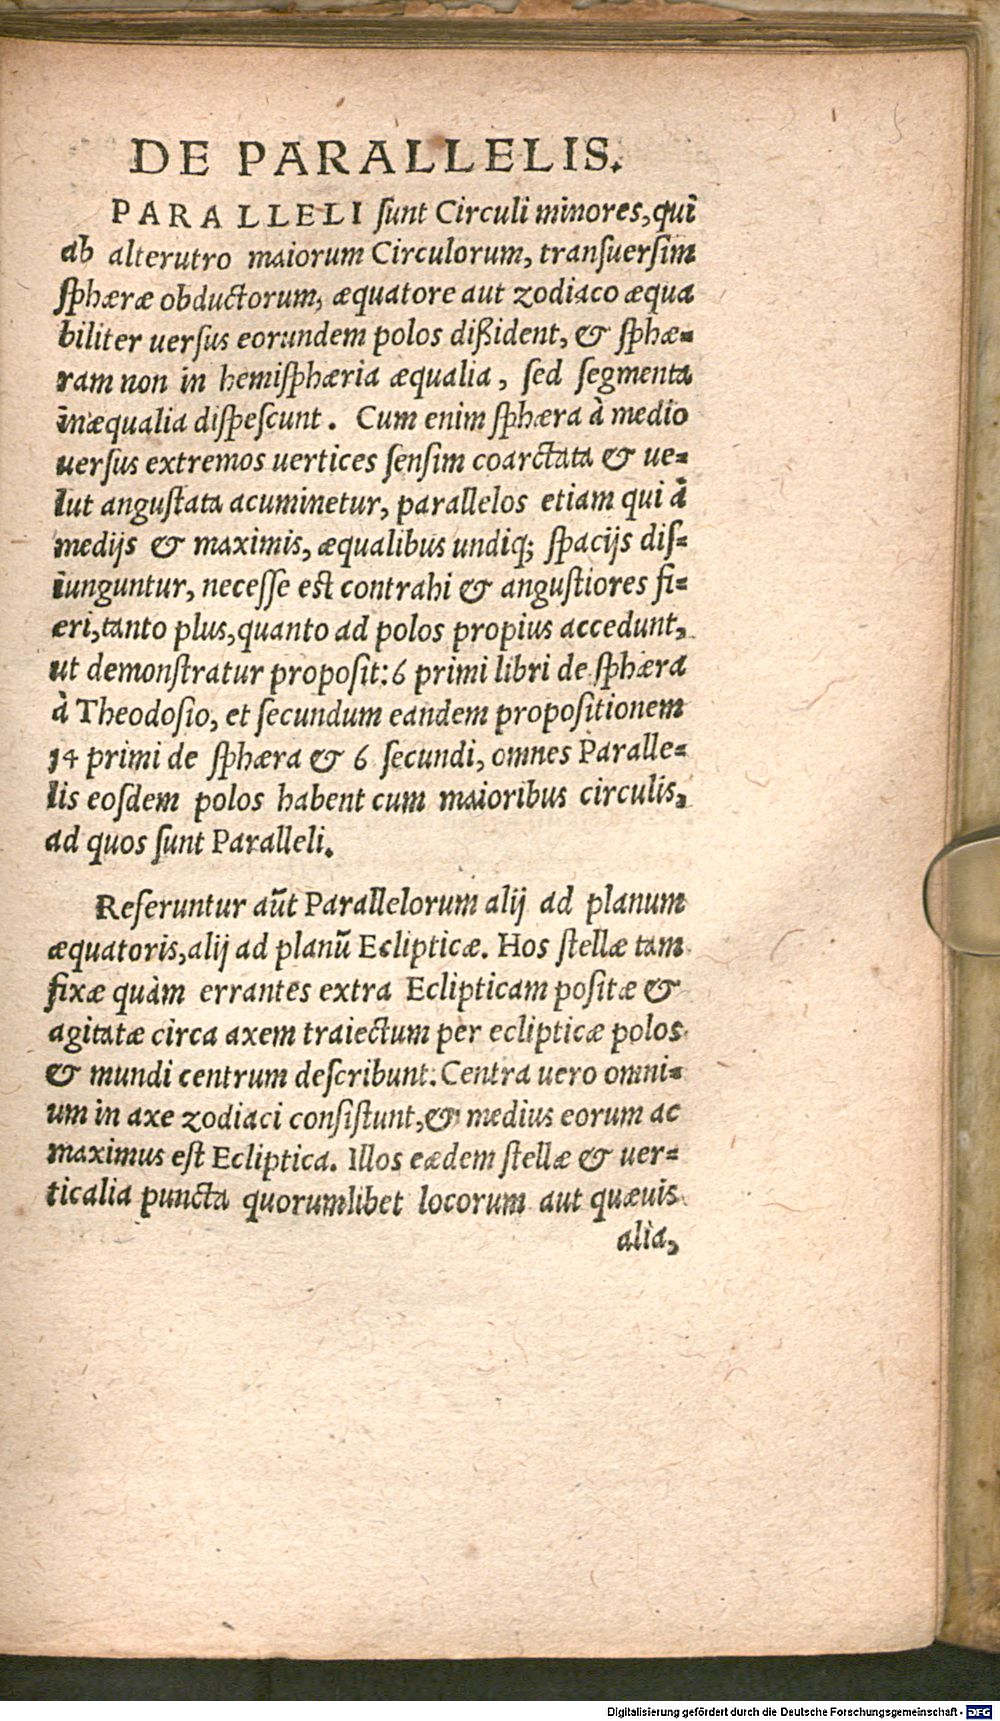 DE PARALLELIS.
PARALLELI sunt Circuli minores, qui
ab alterutro maiorum Circulorum, transuersim
sphæræ obductorum, æquatore aut zodiaco æqua
biliter uersus eorundem polos dißident, & sphæ-
ram non in hemisphæria æqualia, sed segmenta
inæqualia dispescunt. Cum enim sphæra à medio
uersus extremos uertices sensim coarctata & ue-
lut angustata acuminetur, parallelos etiam qui à
medijs & maximis, æqualibus undiq; spacijs dis-
iunguntur, necesse est contrahi & angustiores fi-
eri, tanto plus, quanto ad polos propius accedunt,
ut demonstratur proposit: 6 primi libri de sphæra
à Theodosio, et secundum eandem propositionem
14 primi de sphæra & 6 secundi, omnes Paralle-
lis eosdem polos habent cum maioribus circulis,
ad quos sunt Paralleli.
Referuntur aũt Parallelorum alij ad planum
æquatoris, alij ad planũ Eclipticæ. Hos stellæ tam
fixæ quàm errantes extra Eclipticam positæ &
agitatæ circa axem traiectum per eclipticæ polos
& mundi centrum describunt. Centra uero omni-
um in axe zodiaci consistunt, & medius eorum ac
maximus est Ecliptica. Illos eædem stellæ & uer-
ticalia puncta quorumlibet locorum aut quæuis
alia,
Digitalisierung gefördert durch die Deutsche Forschungsgemeinschaft - DFG